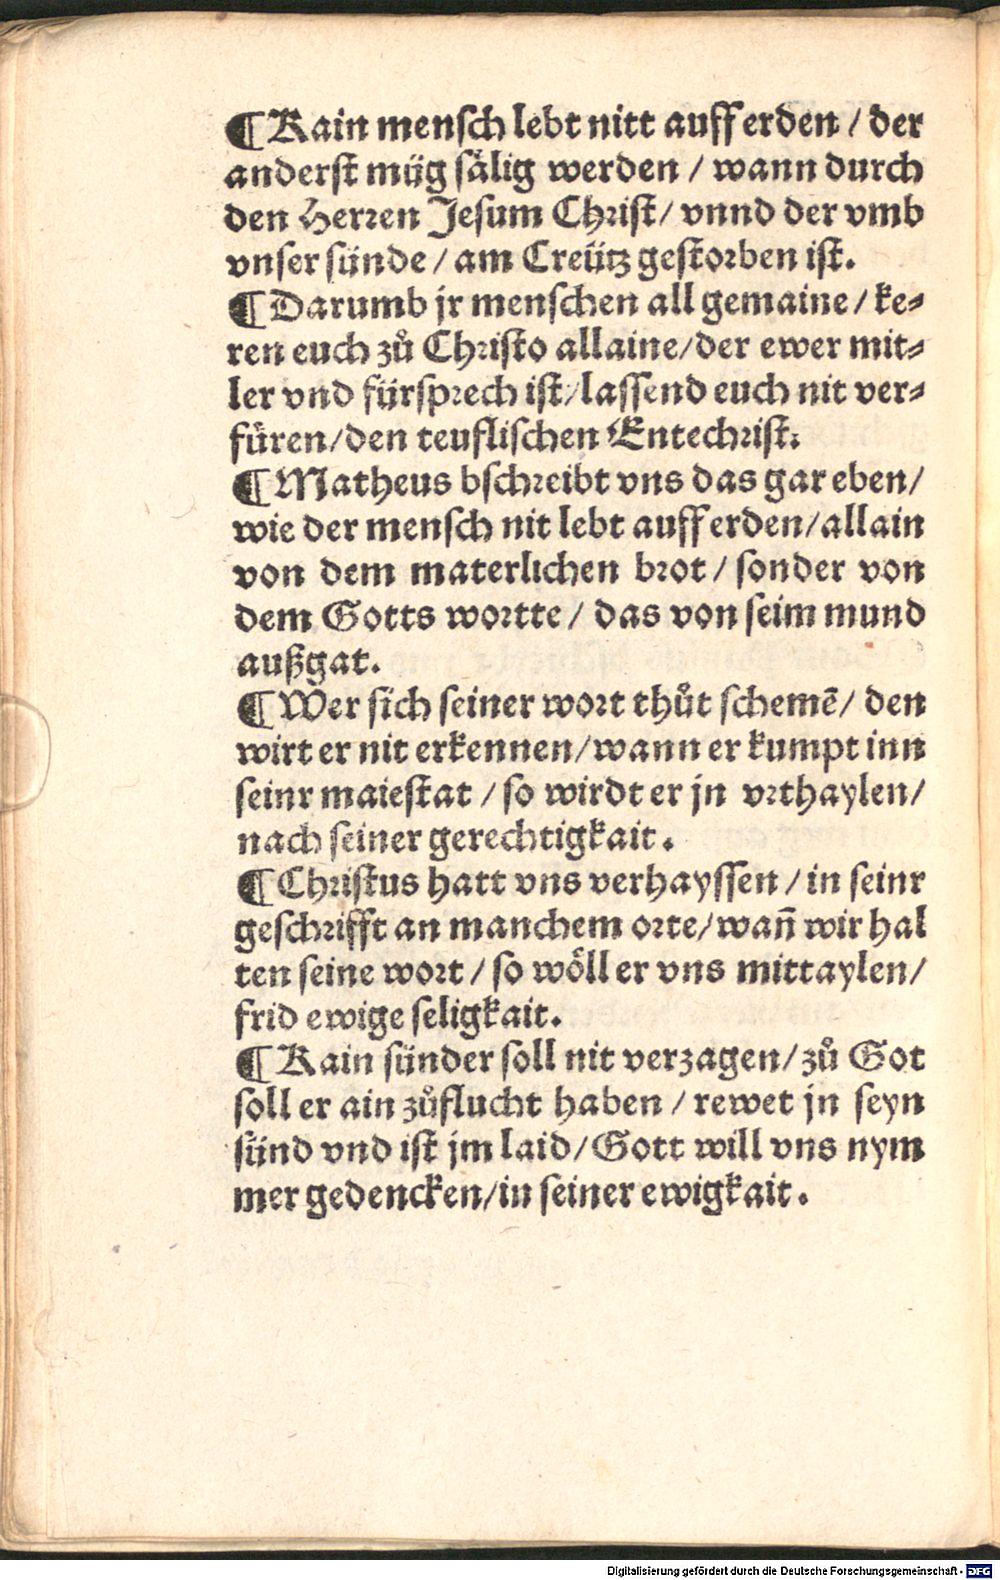 ¶ Kain mensch lebt nitt auff erden / der
anderst müg sälig werden / wann durch
den Herren Jesum Christ / vnnd der vmb
vnser sünde / am Creütz gestorben ist.
¶ Darumb jr menschen all gemaine / ke⸗
ren euch zů Christo allaine / der ewer mit⸗
ler vnd fürsprech ist / lassend euch nit ver⸗
füren / den teuflischen Entechrist.
¶ Matheus bschreibt vns das gar eben /
wie der mensch nit lebt auff erden / allain
von dem materlichen brot / sonder von
dem Gotts wortte / das von seim mund
außgat.
¶ Wer sich seiner wort thůt schemē / den
wirt er nit erkennen / wann er kumpt inn
seinr maiestat / so wirdt er jn vrthaylen /
nach seiner gerechtigkait.
¶ Christus hatt vns verhayssen / in seinr
geschrifft an manchem orte / wañ wir hal
ten seine wort / so wöll er vns mittaylen /
frid ewige seligkait.
¶ Kain sünder soll nit verzagen / zů Got
soll er ain zůflucht haben / rewet jn seyn
sünd vnd ist jm laid / Gott will vns nym
mer gedencken / in seiner ewigkait.
Digitalisierung gefördert durch die Deutsche Forschungsgemeinschaft - DFG